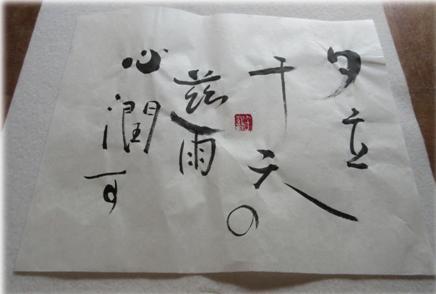 夕立
干天の
慈雨
心潤す